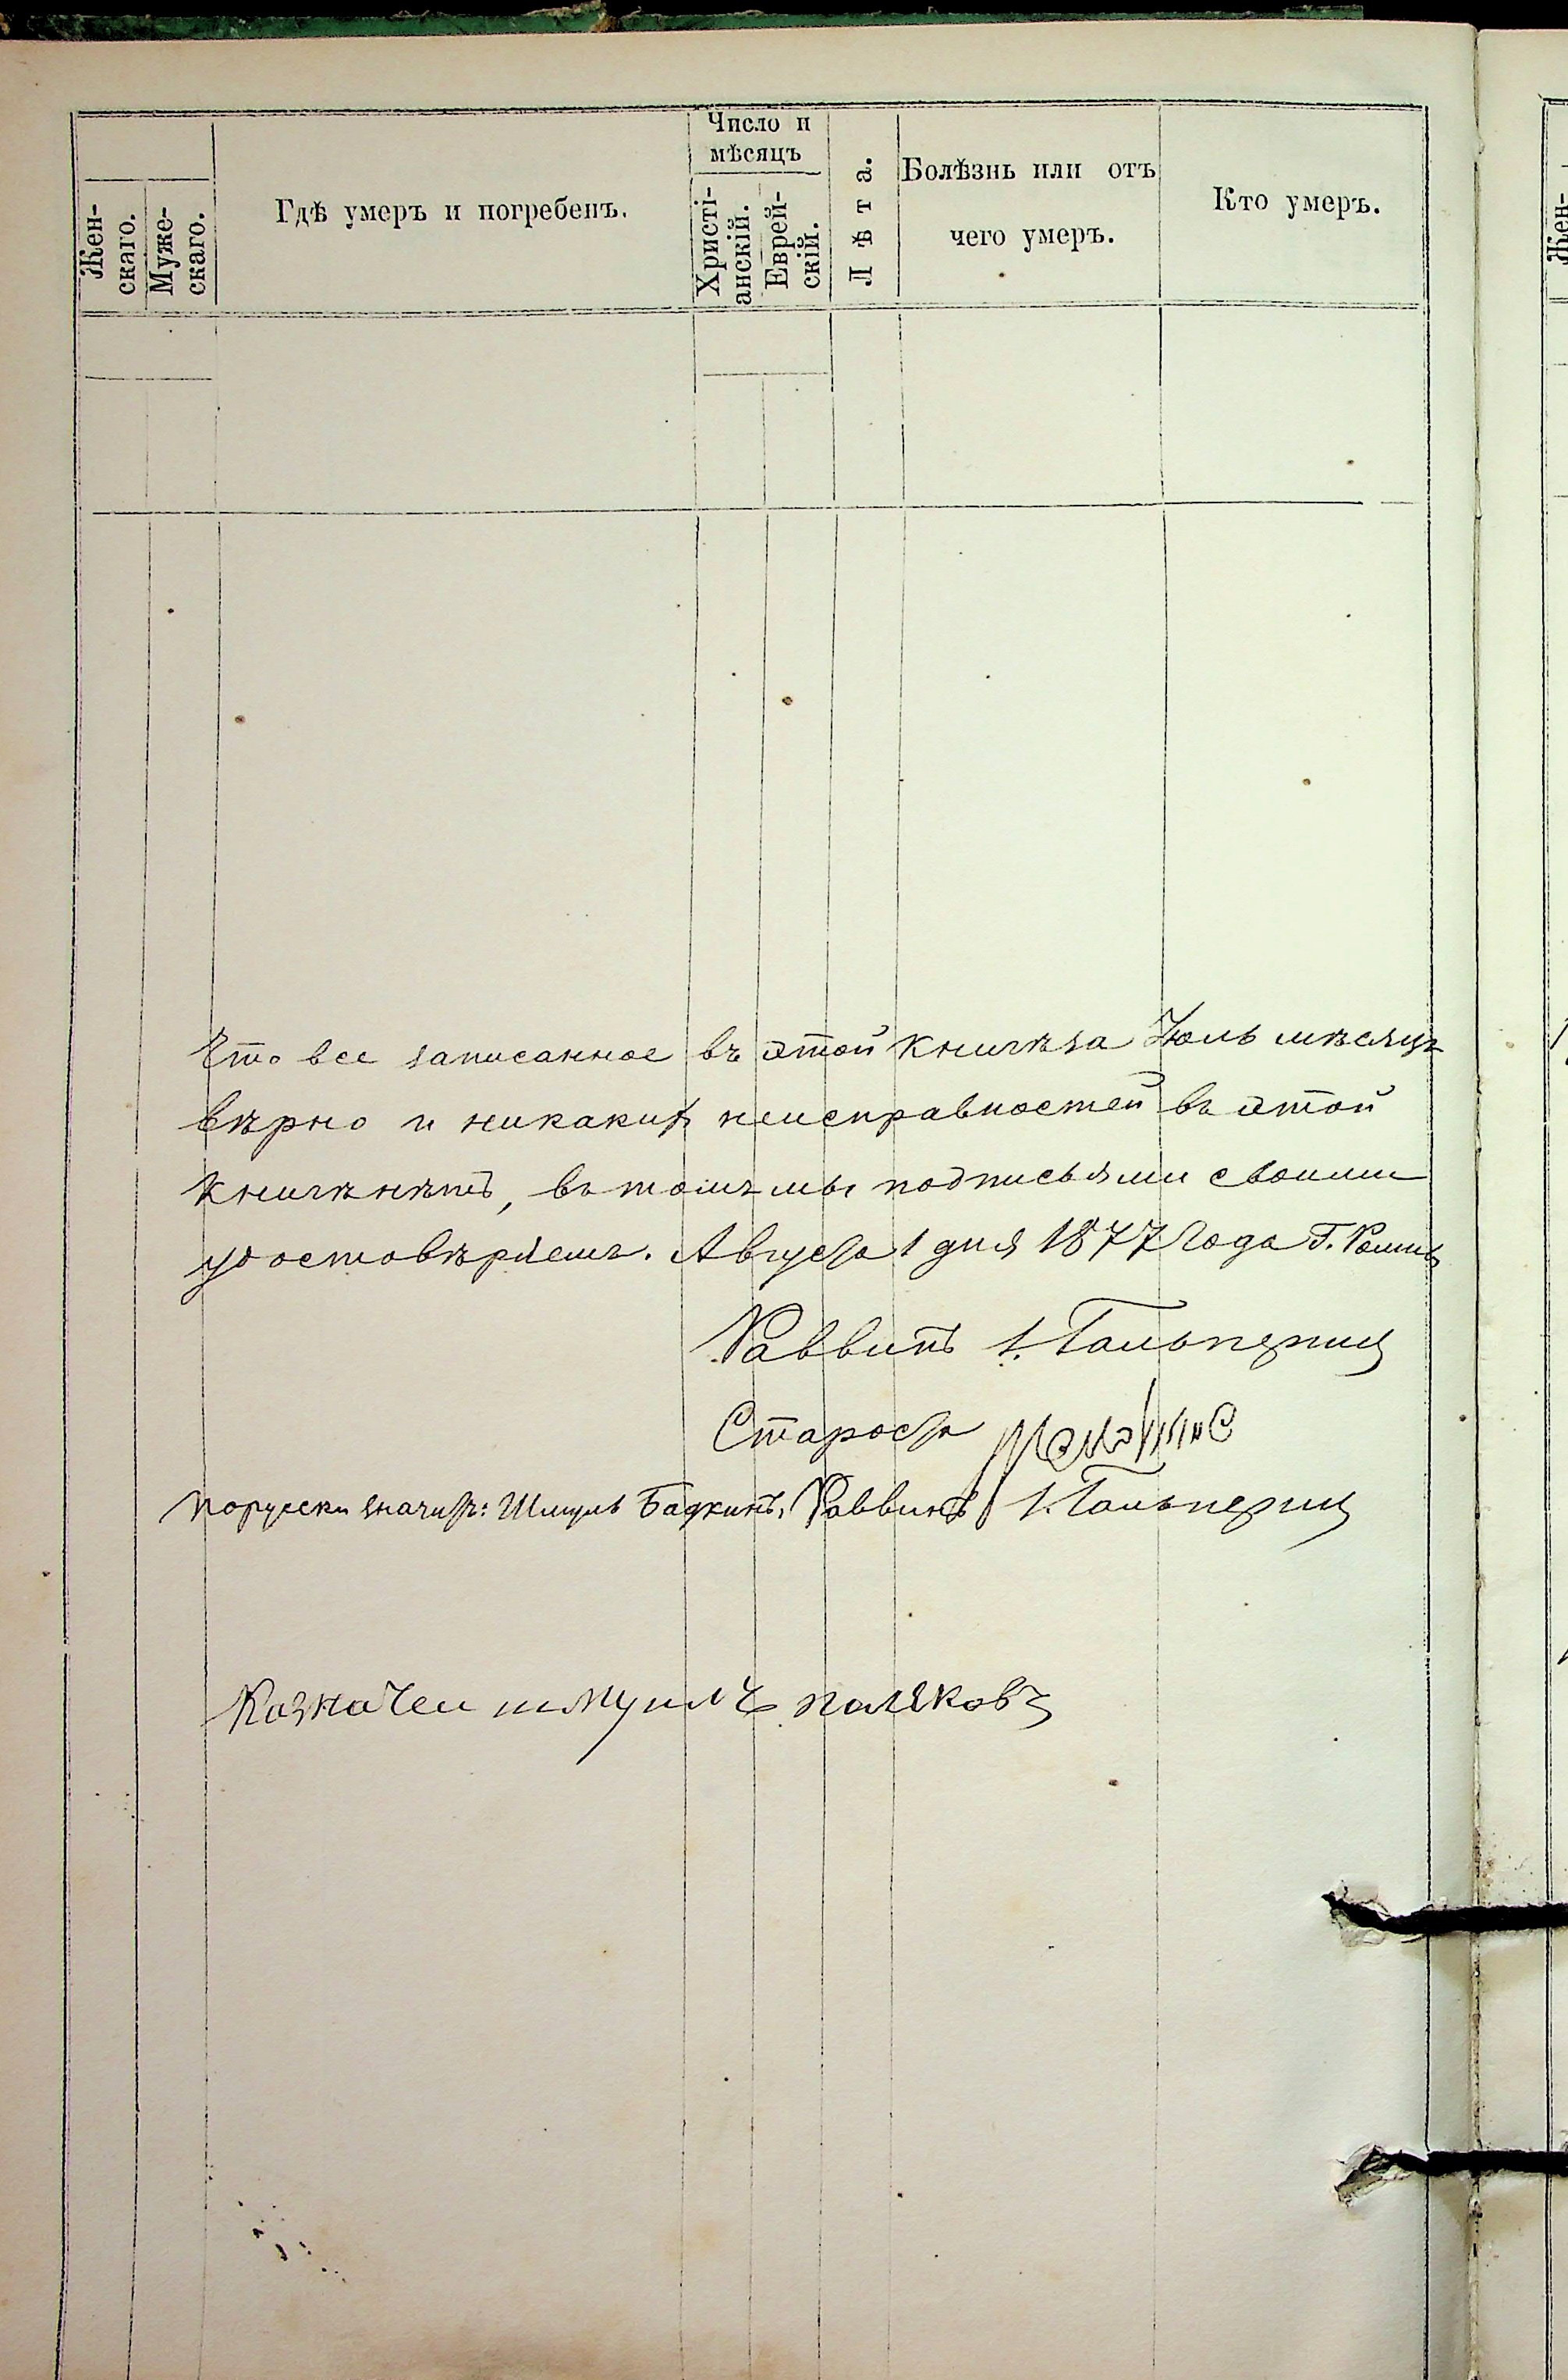 Число и
мѣсяцъ
Жен-
скаго.
Муже-
скаго.
Гдѣ умеръ и погребенъ.
Христі-
анскій.
Еврей-
скій.
Лѣта.
Болѣзнь или отъ
чего умеръ.
Кто умеръ.
Жен-
Что все записанное въ этой книгѣ за Июль мѣсяцъ
вѣрно и никакихъ неисправностей въ этой
книгѣ нѣтъ, въ томъ мы подписьями своими
удостовѣряемъ. Августа 1 дня 1877 года Г.
Раввинъ І. Гальперинъ
Староста
порусски значитъ: Шмуль Бадкинъ, Раввинъ І. Гальперинъ
Казначеи шмуилъ поляковъ